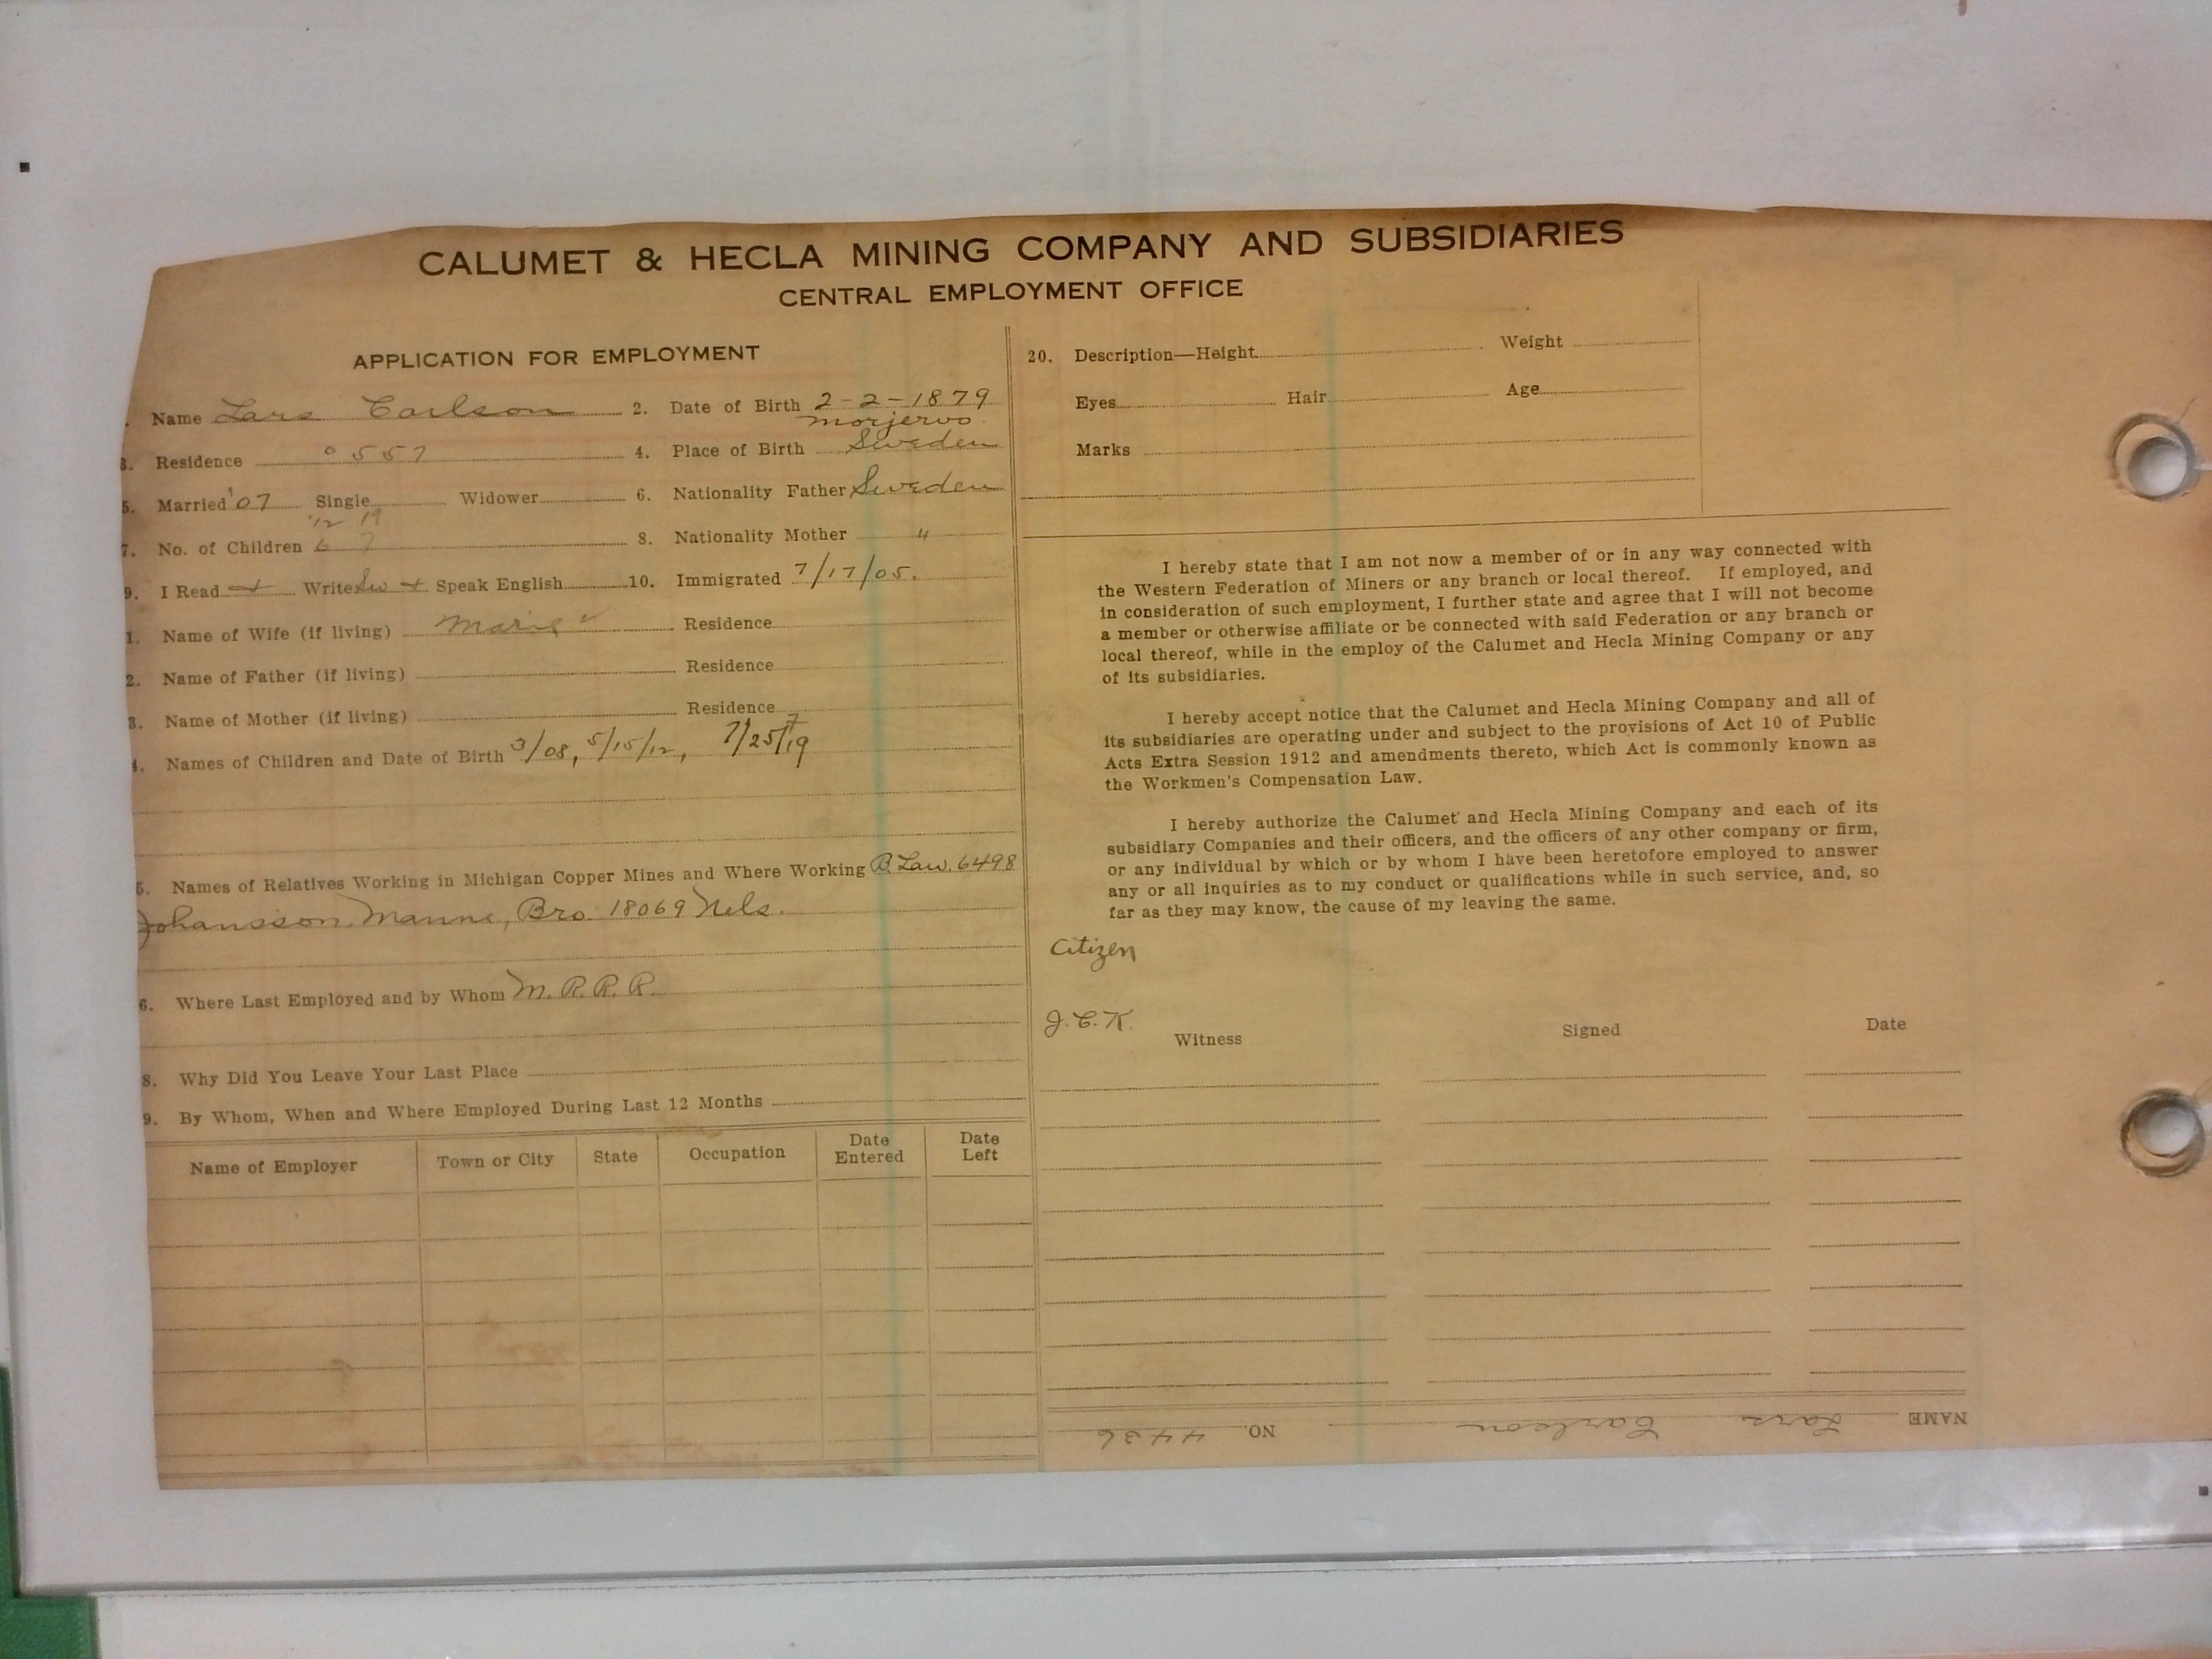 CALUMET & HECLA MINING COMPANY AND SUBSIDIARIES
CENTRAL EMPLOYMENT OFFICE
APPLICATION FOR EMPLOYMENT
. Name Lars Carlson 2. Date of Birth 2-2-1879
morjervo
3. Residence 0557 4. Place of Birth Sweden
5. Married '07 Single Widower 6. Nationality Father Sweden
'12 19
7. No. of Children 6 7 8. Nationality Mother "
9. I Read + Write Sw + Speak English 10. Immigrated 7/17/05.
1. Name of Wife (if living) Marie Residence
2. Name of Father (if living) Residence
3. Name of Mother (if living) Residence
4. Names of Children and Date of Birth 3/08, 5/15/12, 7/25/19
7
5. Names of Relatives Working in Michigan Copper Mines and Where Working B. Law. 6498
Johansson, Manne, Bro. 18069 Nels.
6. Where Last Employed and by Whom M. R. R. R.
8. Why Did You Leave Your Last Place
9. By Whom, When and Where Employed During Last 12 Months
Name of Employer Town or City State Occupation Date Entered Date Left
20. Description—Height Weight
Eyes Hair Age
Marks
I hereby state that I am not now a member of or in any way connected with
the Western Federation of Miners or any branch or local thereof. If employed, and
in consideration of such employment, I further state and agree that I will not become
a member or otherwise affiliate or be connected with said Federation or any branch or
local thereof, while in the employ of the Calumet and Hecla Mining Company or any
of its subsidiaries.
I hereby accept notice that the Calumet and Hecla Mining Company and all of
its subsidiaries are operating under and subject to the provisions of Act 10 of Public
Acts Extra Session 1912 and amendments thereto, which Act is commonly known as
the Workmen's Compensation Law.
I hereby authorize the Calumet and Hecla Mining Company and each of its
subsidiary Companies and their officers, and the officers of any other company or firm,
or any individual by which or by whom I have been heretofore employed to answer
any or all inquiries as to my conduct or qualifications while in such service, and, so
far as they may know, the cause of my leaving the same.
Citizen
J.C.K.
Witness Signed Date
NAME Lars Carlson NO. 4436